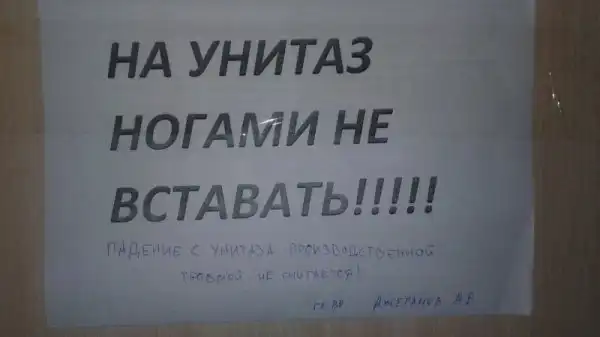 НА УНИТАЗ
НОГАМИ НЕ
ВСТАВАТЬ!!!!!
ПАДЕНИЕ С УНИТАЗА ПРОИЗВОДСТВЕННОЙ
ТРАВМОЙ НЕ СЧИТАЕТСЯ!